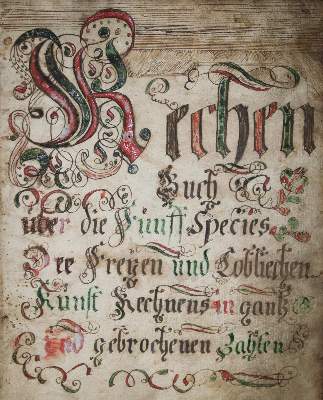 Rechen
Buch
über die Fünff Species
Der Freyen und Loblichen
Kunst Rechnens in gantz
und gebrochenen Zahlen